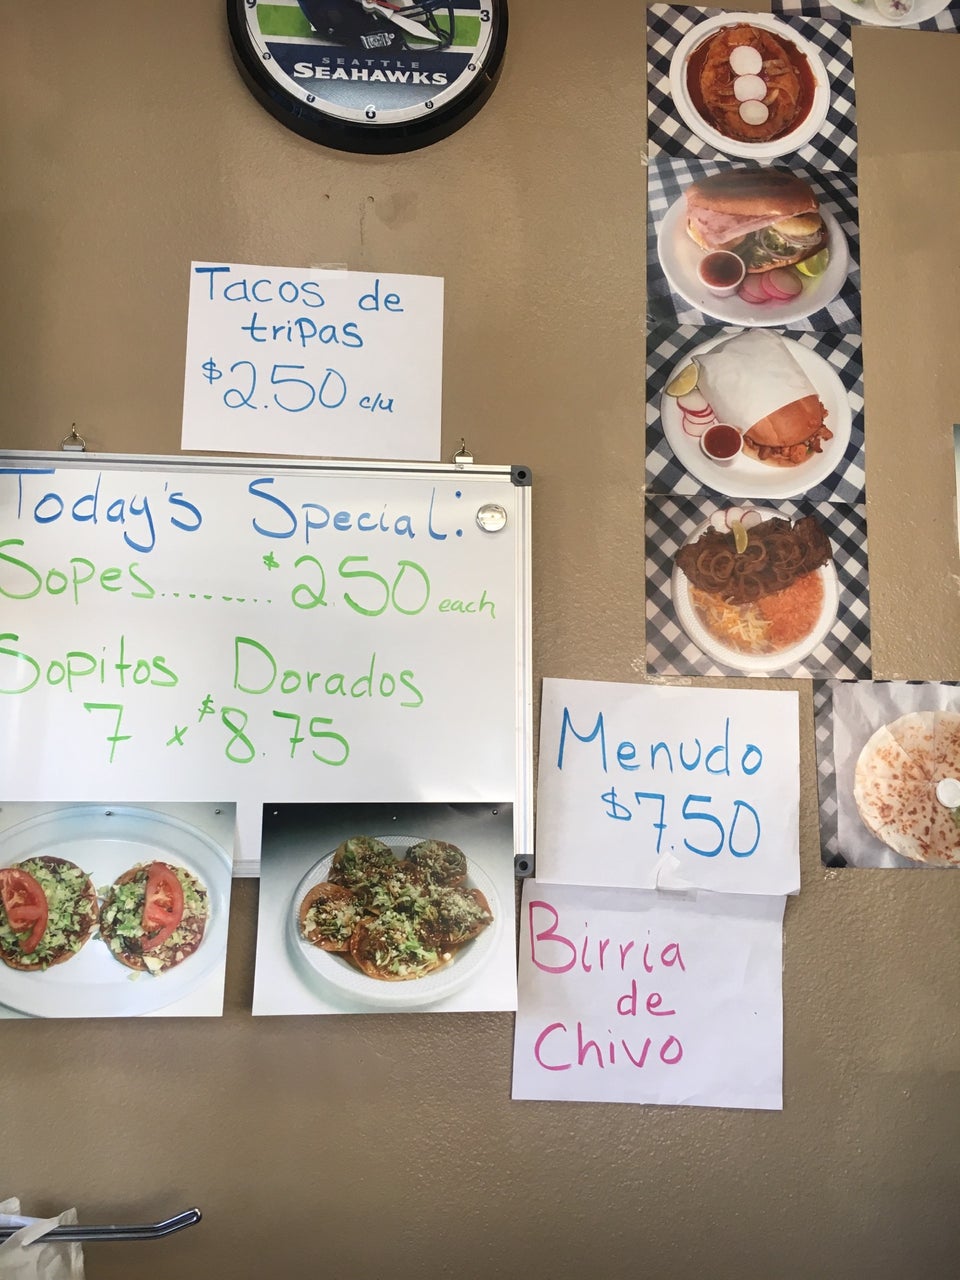 9
3
6
SEATTLE
SEAHAWKS
Tacos de
tripas
$2.50 c/u
Today's Special:
Sopes........ $2.50 each
Sopitos Dorados
7 x $8.75
Menudo
$7.50
Birria
de
Chivo